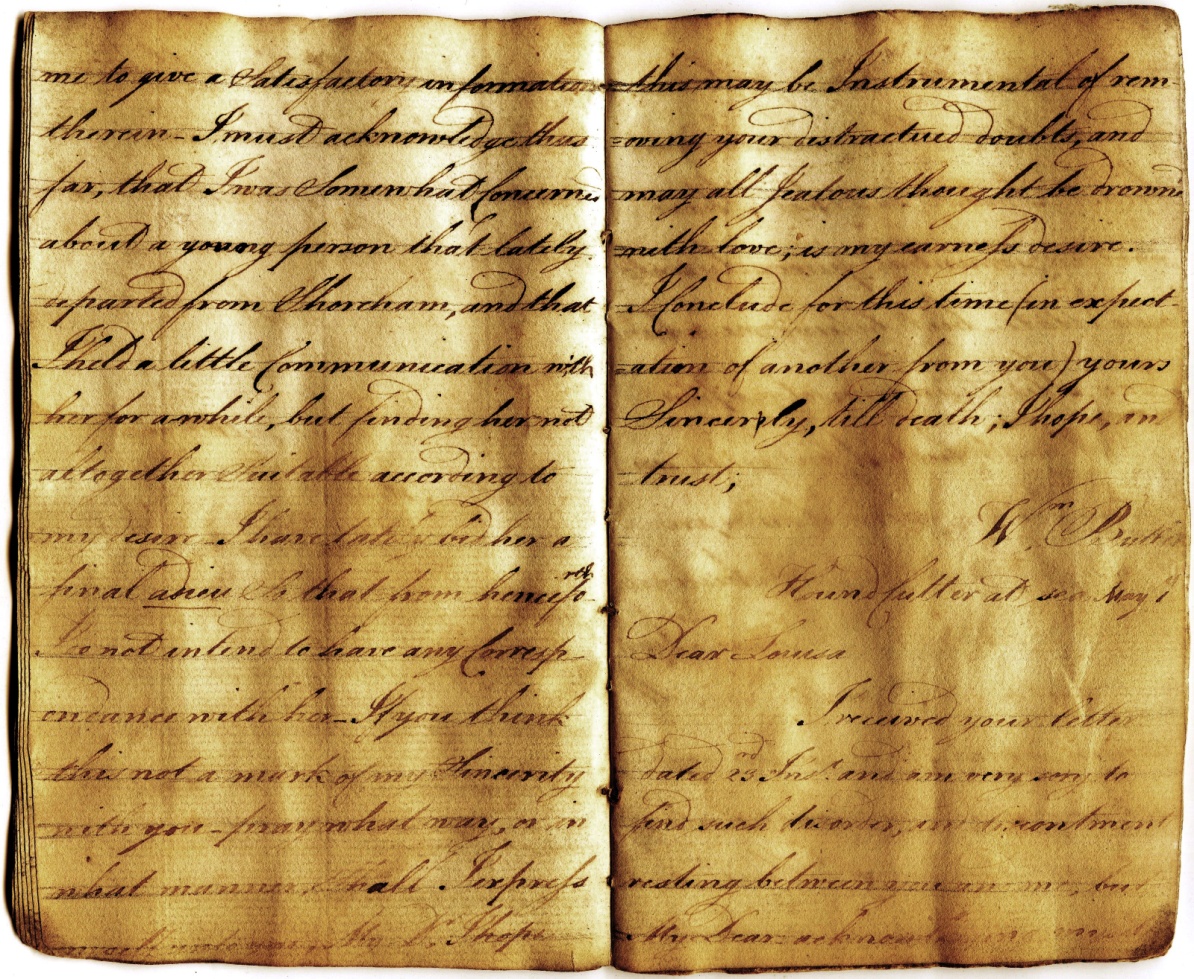 me to give a Satisfactory information
therein - I must acknowledge thus
far, that I was Somewhat Concerned
about a young person that lately
departed from Shoreham, and that
I held a little Communication with
her for a while, but finding her not
altogether Suitable according to
my desire I have lately bid her a
final adieu So that from
I do not intend to have any Corresp
ondance with her - If you think
this not a mark of my Sincerity
with you - pray what way, or in
what manner, Shall I express
My Dr. I hope
this may be Instrumental of rem
=oving your distractued doubts, and
may all Jealous thought be drownd
with love; is my earness desire.
I Conclude for this time (in expect-
=ation of another from you) yours
Sincerely, till death; I hope, an
=trust;
Wm. Butler
Hound Cutter at sea May 1
Dear Louisa
I received your letter
dated 23rd Inst. and am very sory to
find such disorder, and discontment
resting between you and me, but
My Dear